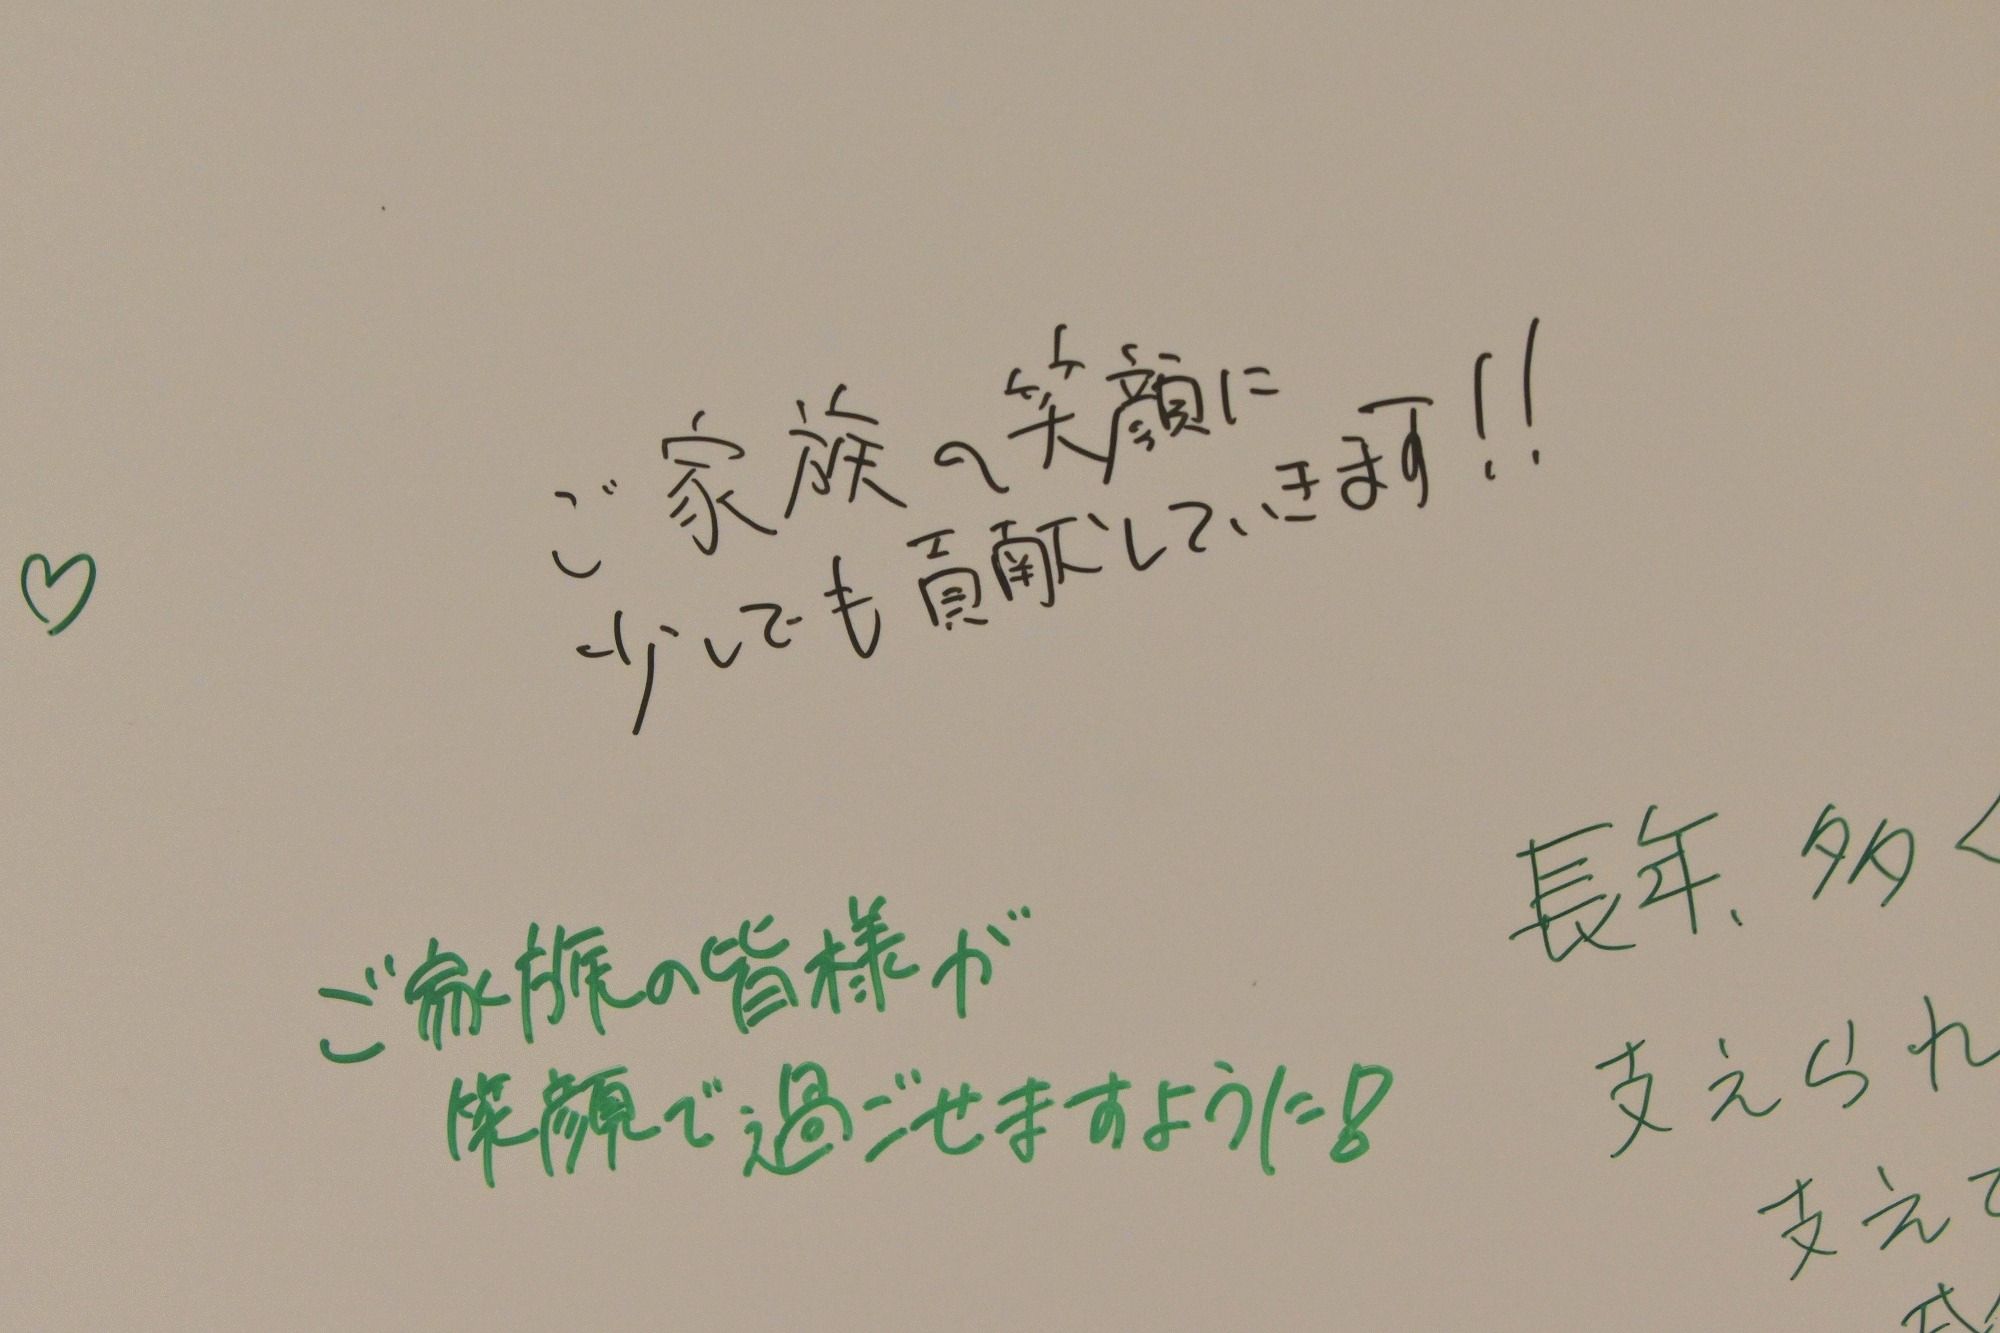 ご家族の笑顔に
少しでも貢献していきます!!
ご家族の皆様が
笑顔で過ごせますように!
長年、多く
支えられ
支えて